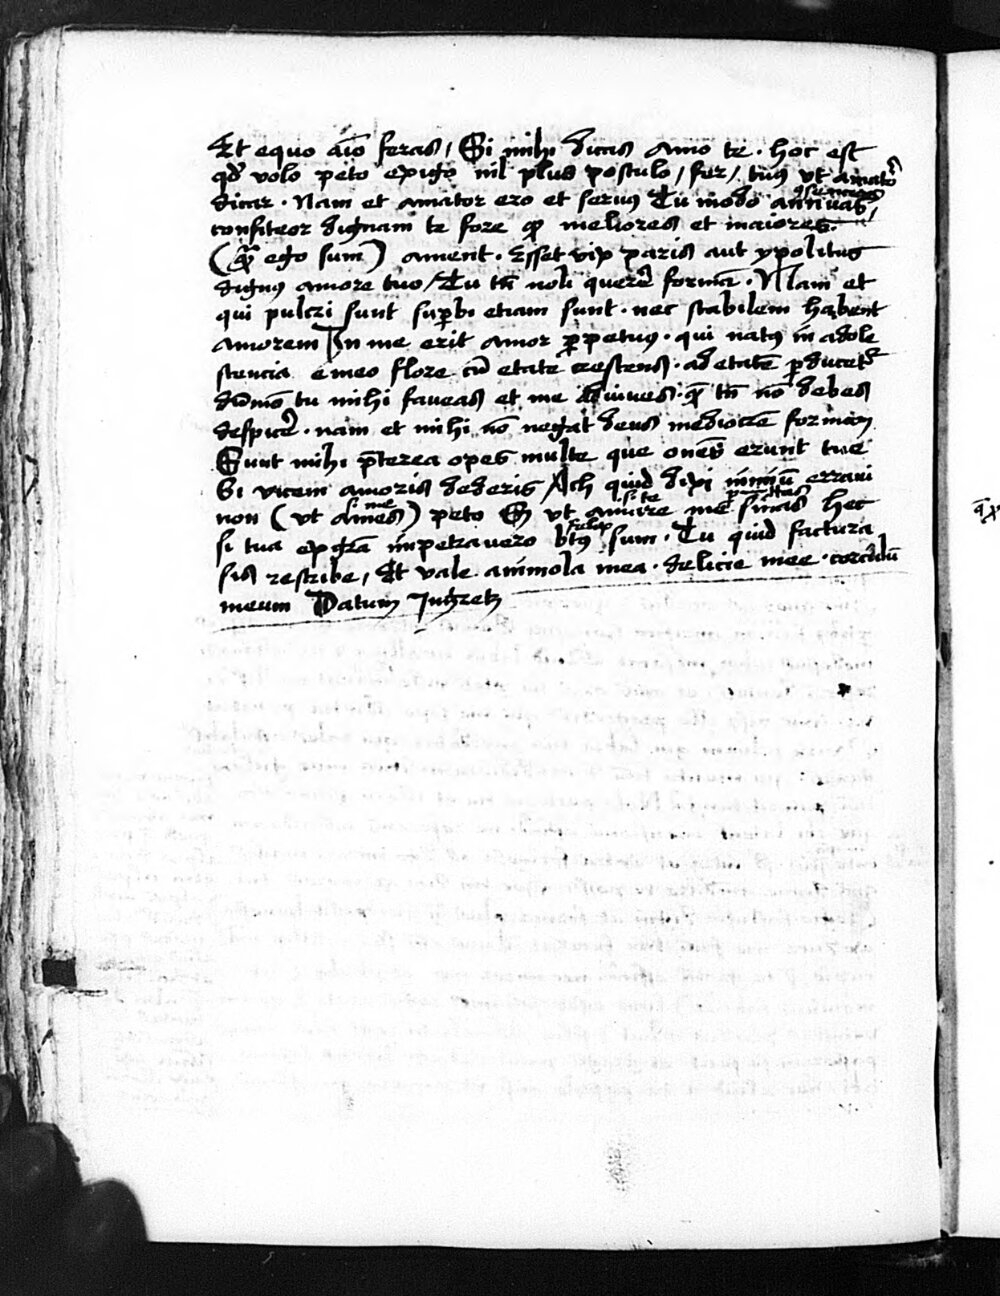 Et equo aīo feras / Si mihi dicas amo te · hoc est
qđ volo peto exigo nil plus postulo / fer / tuus vt amator
dicar · Nam et amator ero et seruus Tu modo annuas /
confiteor dignam te fore qđ meliores et maiores
(qz̄ ego sum) ament · Esset vix paris aut ypolitus
dignus amore tuo / Tu tn̄ noli querere formā · Nam et
qui pulcri sunt superbi etiam sunt · nec stabilem habent
amorem In me erit amor perpetuus · qui natus in adole
stencia e meo flore cū etate crestens · ad etatē perducetur
dūmō tu mihi faueas et me adiuues · q̄ tn̄ nō debes
despicere · nam et mihi nō negat deus mediocrē formam
Sunt mihi p̄terea opes multe que omnes erunt tue
Si vicem amoris dederis / Ach quid dixi nimiū erraui
non (vt si me ames) peto Sz vt si te amare me permittas sinas hec
si tua ex gr̄a impetrauero felix btūs sum · Tu quid factura
sis rescribe / Et vale animola mea · delicie mee · corculū
meum Datum